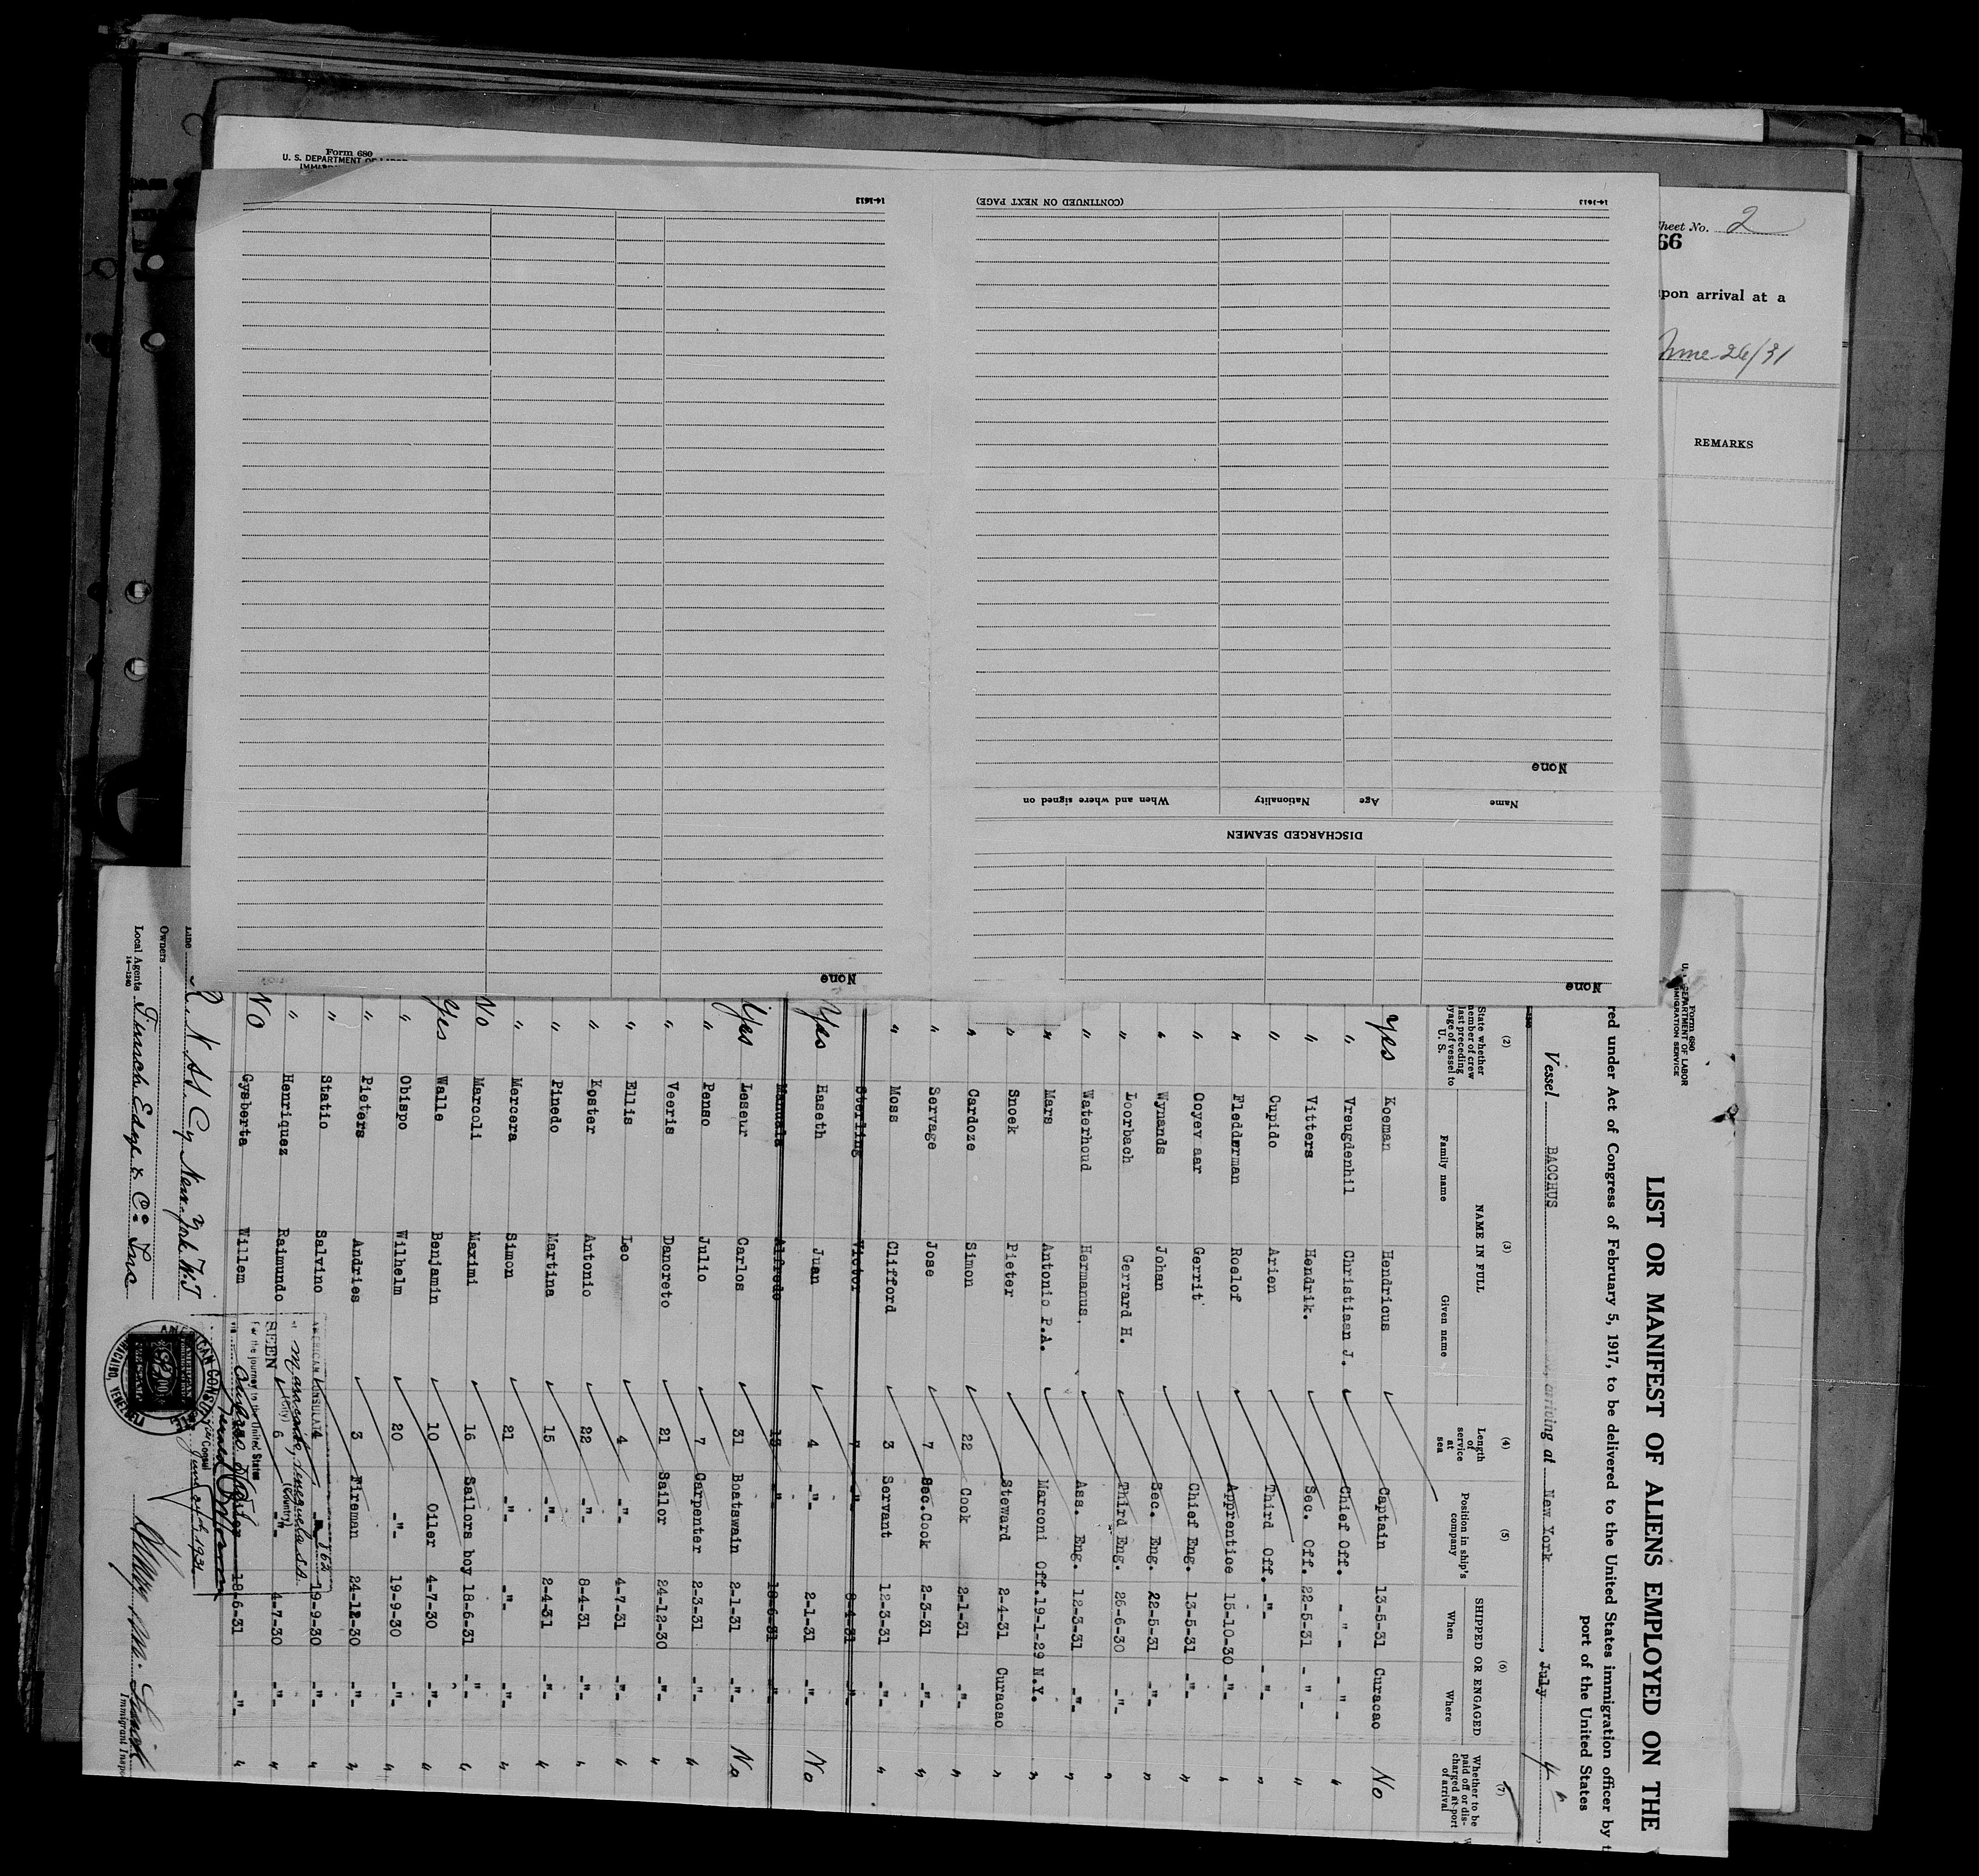 Form 680
U. S. DEPARTMENT OF LABOR
Sheet No. 2
66
upon arrival at a
June 26/31
REMARKS
None
None
DISCHARGED SEAMEN
Name Age Nationality When and where signed on
None
(CONTINUED ON NEXT PAGE)
14-1613
14-1613
Form 680
U. S. DEPARTMENT OF LABOR
IMMIGRATION SERVICE
LIST OR MANIFEST OF ALIENS EMPLOYED ON THE
red under Act of Congress of February 5, 1917, to be delivered to the United States immigration officer by t
port of the United States
Vessel BACCHUS, arriving at New York, July 4th
(2) (3) (4) (5) (6) (7)
State whether member of crew last preceding voyage of vessel to U. S.
NAME IN FULL
Family name Given name
Length of service at sea
Position in ship's company
SHIPPED OR ENGAGED
When Where
Whether to be paid off or discharged at port of arrival
Yes Kooman Hendricus Captain 13-5-31 Curacao No
" Vreugdenhil Christiaan J. Chief Off. -"- -"- "
" Vitters Hendrik. Sec. Off. 22-5-31 -"- "
" Cupido Arien Third Off. -"- -"- "
" Fledderman Roelof Apprentice 15-10-30 -"- "
" Goyevaar Gerrit Chief Eng. 13-5-31 -"- "
" Wynands Johan Sec. Eng. 22-5-31 -"- "
" Loorbach Gerrard H. Third Eng. 25-6-30 -"- "
" Waterhoud Hermanus. Ass. Eng. 12-3-31 -"- "
" Mars Antonio P.A. Marconi Off. 19-1-29 N.Y. "
" Snoek Pieter Steward 2-4-31 Curacao "
" Cardoze Simon 22 Cook 2-1-31 -"- "
" Servage Jose 7 Sec.Cook 2-3-31 -"- "
" Moss Clifford 3 Servant 12-3-31 -"- "
Sterling Victor 7 -"- 8-4-31 -"-
Yes Haseth Juan 4 -"- 2-1-31 -"- No
Manuala Alfredo 13 -"- 18-6-31 -"-
Yes Leseur Carlos 31 Boatswain 2-1-31 -"- No
" Penso Julio 7 Carpenter 2-3-31 -"- "
" Veeris Dancreto 21 Sailor 24-12-30 -"- "
" Ellis Leo 4 -"- 4-7-31 -"- "
" Koster Antonio 22 -"- 8-4-31 -"- "
" Pinedo Martina 15 -"- 2-4-31 -"- "
" Mercera Simon 21 -"- -"- -"- "
No Marcoli Maximi 16 Sailors boy 18-6-31 -"- "
Yes Walle Benjamin 10 Oiler 4-7-30 -"- "
" Obispo Wilhelm 20 -"- 19-9-30 -"- "
" Pieters Andries 3 Fireman 24-12-30 -"- "
" Statio Salvino 4 -"- 19-9-30 -"- "
" Henriquez Raimundo 6 -"- 4-7-30 -"- "
No Gysberta Willem 18-6-31 -"- "
AMERICAN CONSULATE
at Maracaibo, Venezuela S.A.
(City) (Country)
SEEN
For the journey to the United States
AMERICAN CONSULATE
MARACAIBO, VENEZUELA
Line R. N. St. Cy New-York W.I
Owners
Local Agents Funch Edye & Co. Inc
14-1240
Immigrant Inspe